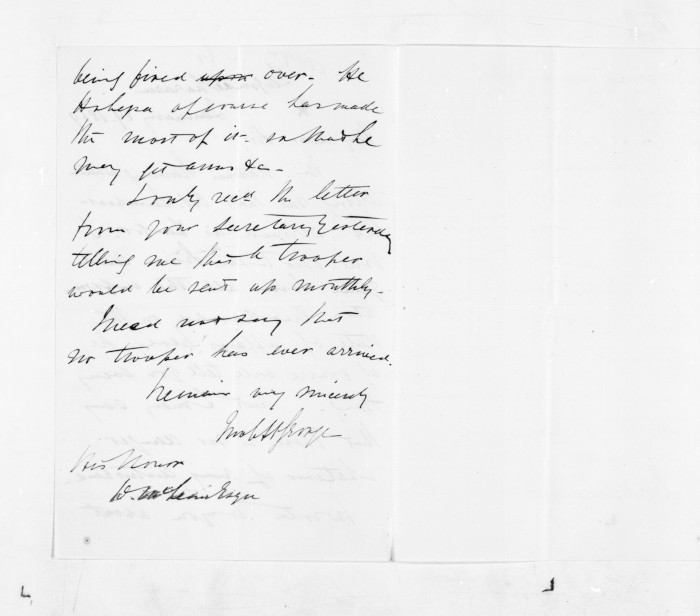 being fired upon over. He
Hohepa of course has made
the most of it - so that he
may get arms &c -
I only recd the letter
from your Secretary yesterday
telling me that a trooper
would be sent up monthly.
I need not say that
no trooper has ever arrived.
I remain very sincerely
His Honor
D. McLean Esqre